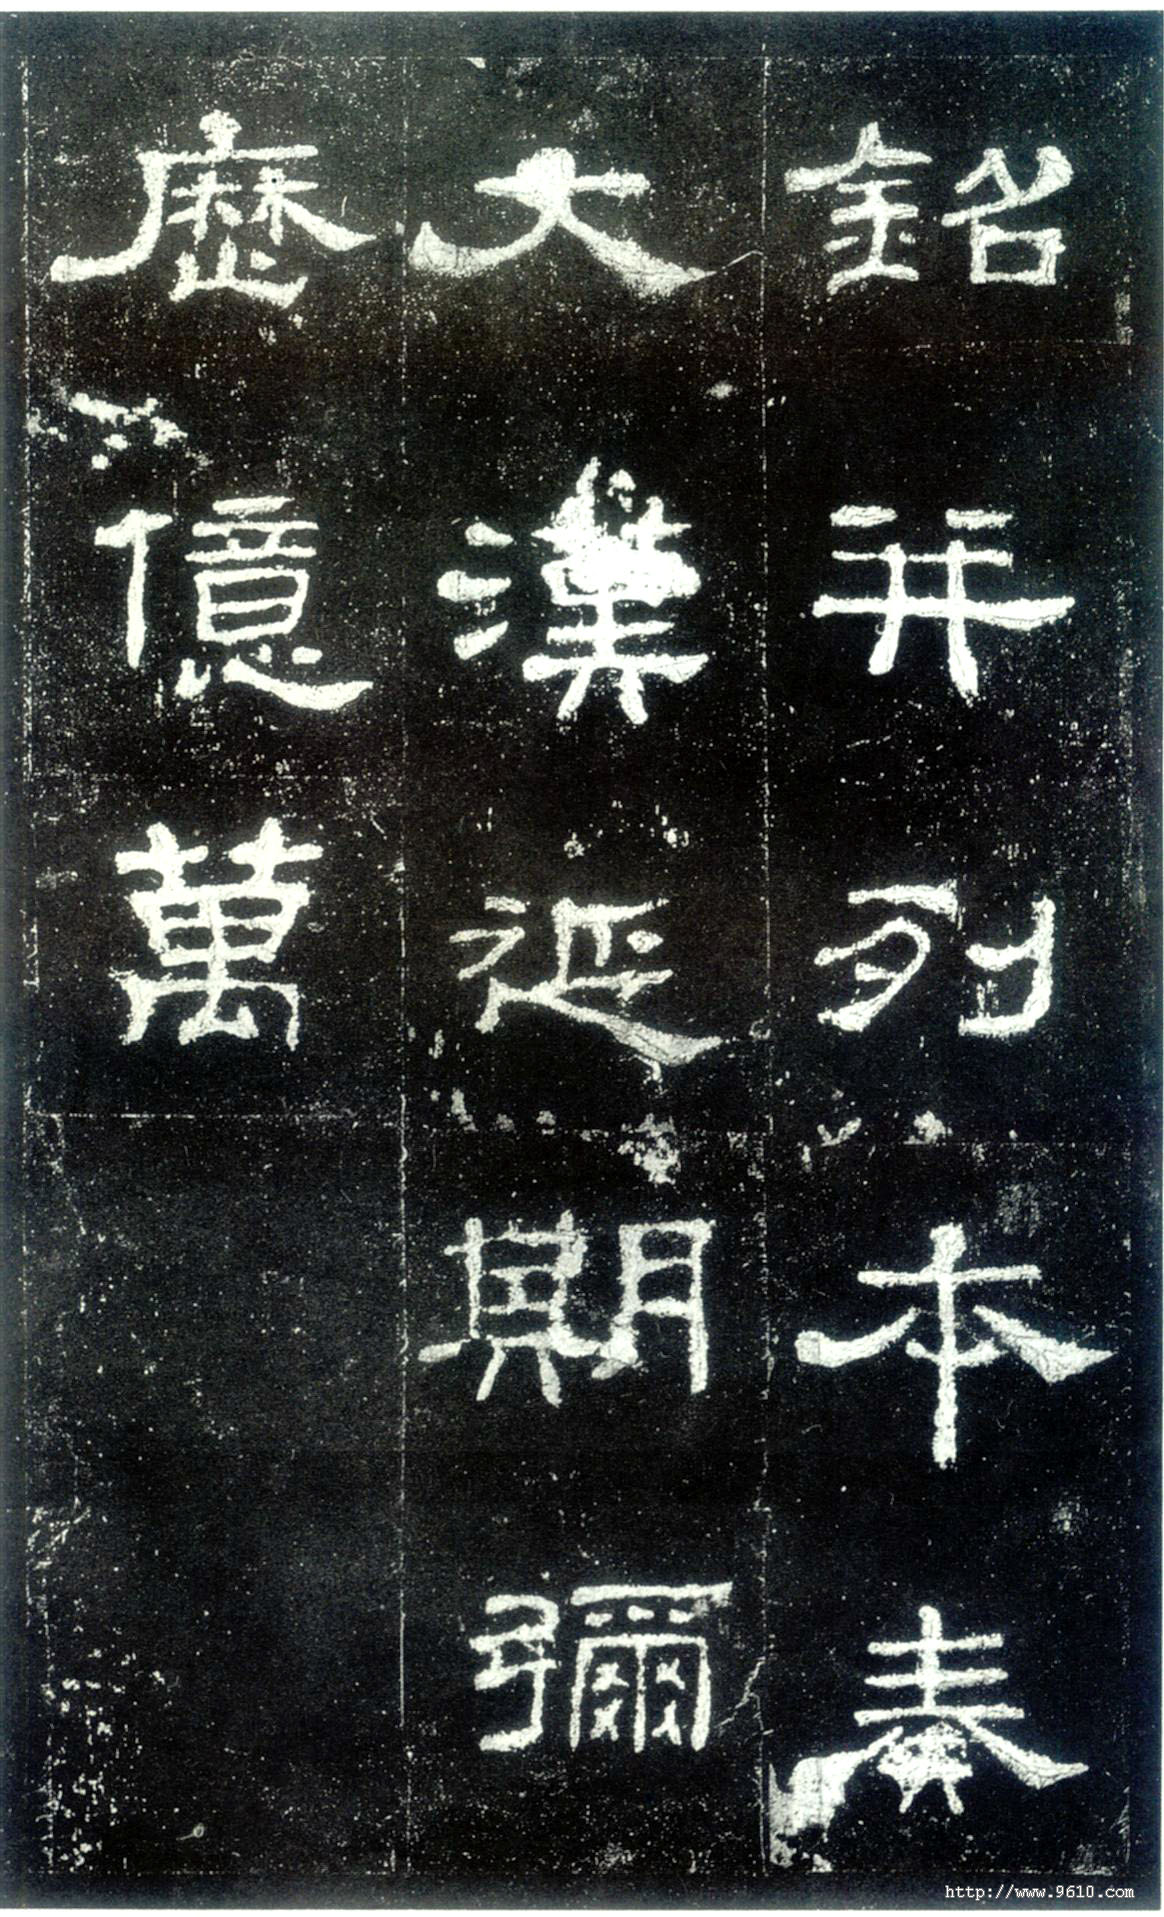 銘并列本奏
大漢延期彌
歷億萬
http://www.9610.com